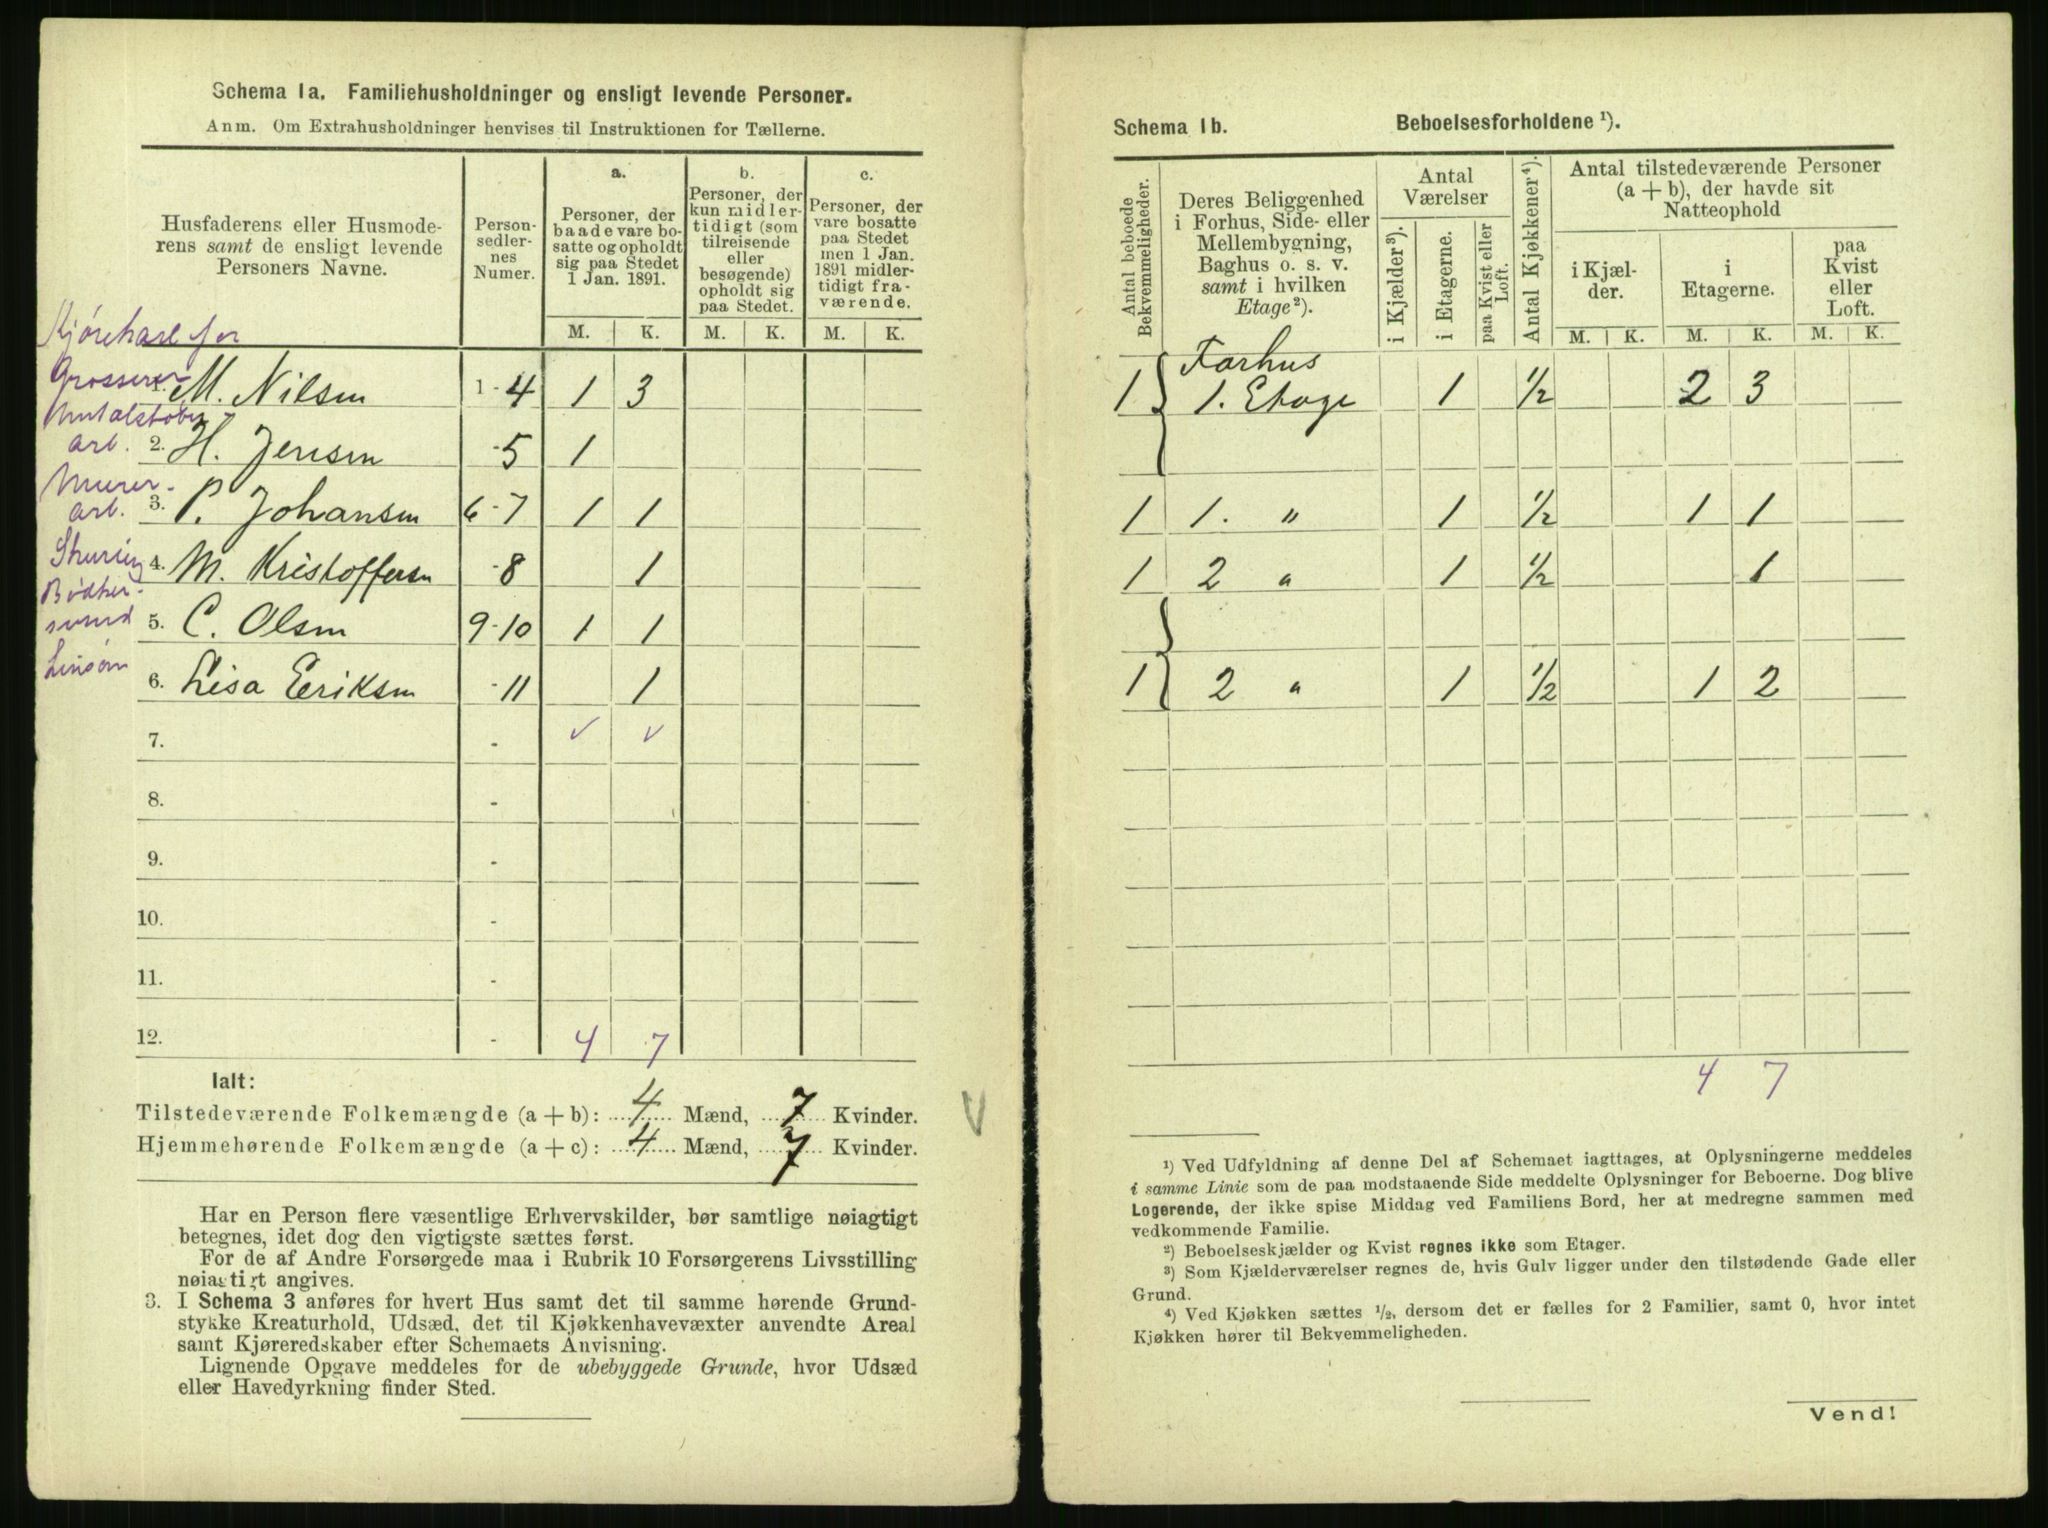 Schema 1a. Familiehusholdninger og ensligt levende Personer.
Anm. Om Extrahusholdninger henvises til Instruktionen for Tællerne.
Husfaderens eller Husmode-
rens samt de ensligt levende
Personers Navne.
Person-
sedler-
nes
Numer.
a.
Personer, der
baade vare bo-
satte og opholdt
sig paa Stedet
1 Jan. 1891.
b.
Personer, der
kun midler-
tidigt (som
tilreisende
eller
besøgende)
opholdt sig
paa Stedet.
c.
Personer, der
vare bosatte
paa Stedet
men 1 Jan.
1891 midler-
tidigt fra-
værende.
M. K. M. K. M. K.
Kjørekarl for
Grosserer
1. M. Nilsen 1-4 1 3
arb.
2. H. Jensen -5 1
Murer-
arb.
3. P. Johansen 6-7 1 1
4. M. Kristoffersen -8 1
Bødker-
svend
5. C. Olsen 9-10 1 1
6. Lisa Eriksen -11 1
7. - v v
8. -
9. -
10. -
11. -
12. - 4 7
Ialt:
Tilstedeværende Folkemængde (a + b): 4 Mænd, 7 Kvinder.
Hjemmehørende Folkemængde (a + c): 4 Mænd, 7 Kvinder.
V
Har en Person flere væsentlige Erhvervskilder, bør samtlige nøiagtigt
betegnes, idet dog den vigtigste sættes først.
For de af Andre Forsørgede maa i Rubrik 10 Forsørgerens Livsstilling
nøiagtigt angives.
3. I Schema 3 anføres for hvert Hus samt det til samme hørende Grund-
stykke Kreaturhold, Udsæd, det til Kjøkkenhavevæxter anvendte Areal
samt Kjøreredskaber efter Schemaets Anvisning.
Lignende Opgave meddeles for de ubebyggede Grunde, hvor Udsæd
eller Havedyrkning finder Sted.
Schema 1b. Beboelsesforholdene ¹).
Antal beboede
Bekvemmeligheder.
Deres Beliggenhed
i Forhus, Side- eller
Mellembygning,
Baghus o. s. v.
samt i hvilken
Etage²).
Antal
Værelser
i Kjælder³).
i Etagerne.
paa Kvist eller
Loft.
Antal Kjøkkener⁴).
Antal tilstedeværende Personer
(a + b), der havde sit
Natteophold
i Kjæl-
der.
i
Etagerne.
paa
Kvist
eller
Loft.
M. K. M. K. M. K.
Forhus
1 1. Etage 1 1/2 2 3
1 1. " 1 1/2 1 1
1 2 " 1 1/2 1
1 2 " 1 1/2 1 2
4 7
¹) Ved Udfyldning af denne Del af Schemaet iagttages, at Oplysningerne meddeles
i samme Linie som de paa modstaaende Side meddelte Oplysninger for Beboerne. Dog blive
Logerende, der ikke spise Middag ved Familiens Bord, her at medregne sammen med
vedkommende Familie.
²) Beboelseskjælder og Kvist regnes ikke som Etager.
³) Som Kjælderværelser regnes de, hvis Gulv ligger under den tilstødende Gade eller
Grund.
⁴) Ved Kjøkken sættes ¹/₂, dersom det er fælles for 2 Familier, samt 0, hvor intet
Kjøkken hører til Bekvemmeligheden.
Vend!